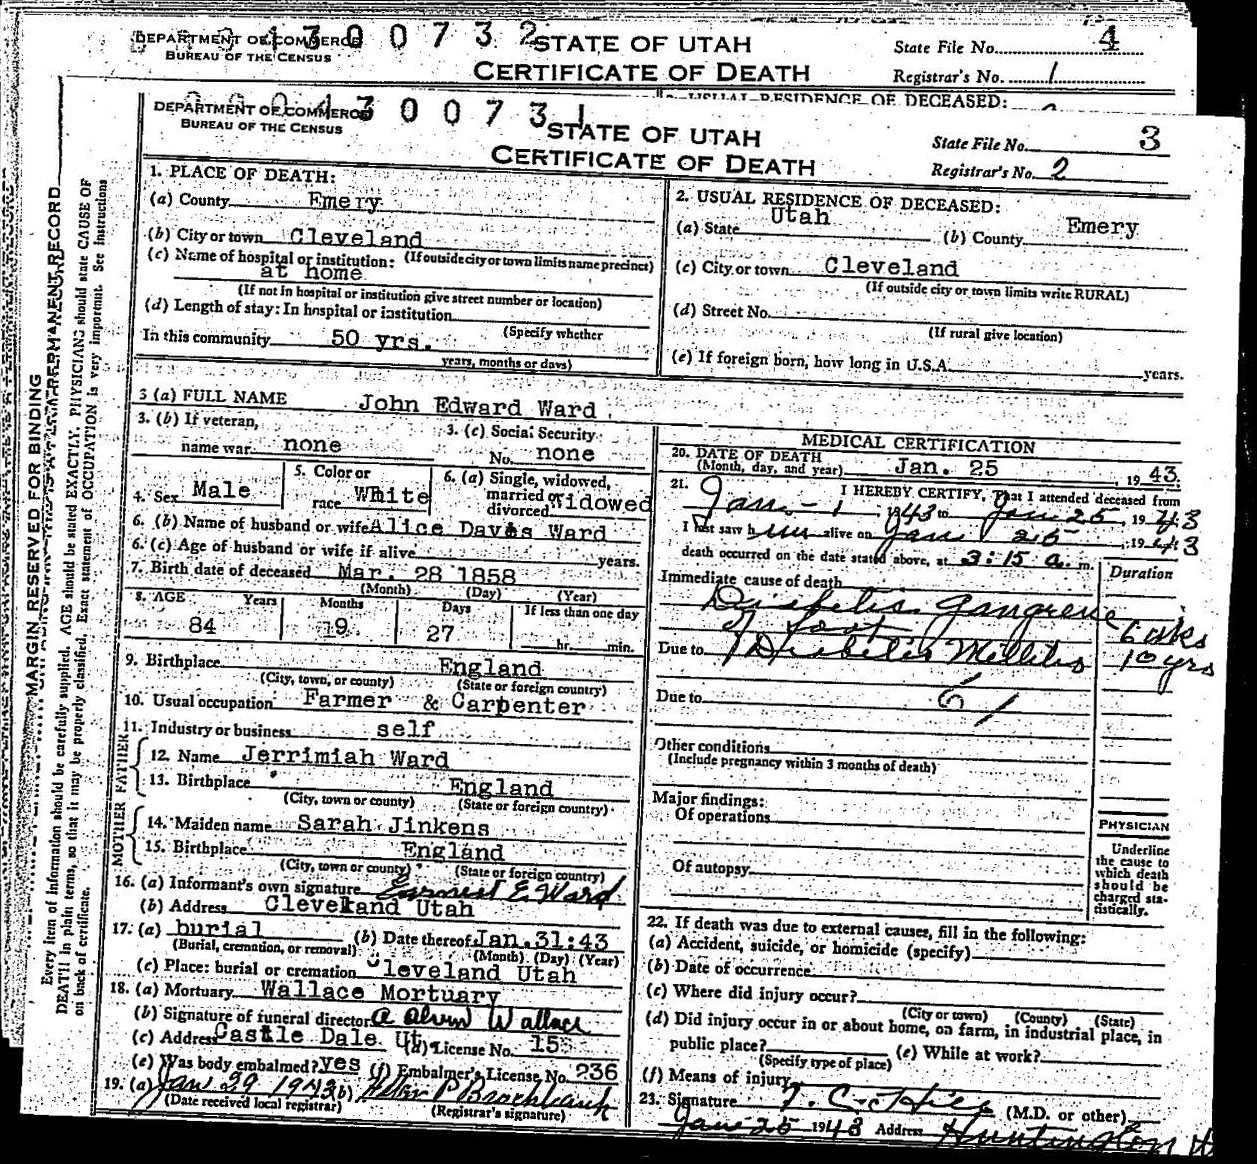 DEPARTMENT OF COMMERCE
BUREAU OF THE CENSUS
300732
STATE OF UTAH
CERTIFICATE OF DEATH
State File No. 4
Registrar's No. 1
2. USUAL RESIDENCE OF DECEASED:
DEPARTMENT OF COMMERCE
BUREAU OF THE CENSUS
300731
STATE OF UTAH
CERTIFICATE OF DEATH
State File No. 3
Registrar's No. 2
MARGIN RESERVED FOR BINDING
Every item of information should be carefully supplied. AGE should be stated EXACTLY. PHYSICIANS should state CAUSE OF
DEATH in plain terms, so that it may be properly classified. Exact statement of OCCUPATION is very important. See instructions
on back of certificate.
1. PLACE OF DEATH:
(a) County Emery
(b) City or town Cleveland
(c) Name of hospital or institution: (If outside city or town limits name precinct)
at home
(If not in hospital or institution give street number or location)
(d) Length of stay: In hospital or institution
(Specify whether
In this community 50 yrs.
years, months or days)
2. USUAL RESIDENCE OF DECEASED:
(a) State Utah (b) County Emery
(c) City or town Cleveland
(If outside city or town limits write RURAL)
(d) Street No.
(If rural give location)
(e) If foreign born, how long in U.S.A. years.
3 (a) FULL NAME John Edward Ward
3. (b) If veteran,
name war none
3. (c) Social Security
No. none
4. Sex Male
5. Color or
race White
6. (a) Single, widowed,
married or
divorced Widowed
6. (b) Name of husband or wife Alice Davis Ward
6. (c) Age of husband or wife if alive years.
7. Birth date of deceased Mar. 28 1858
(Month) (Day) (Year)
8. AGE Years Months Days If less than one day
84 9 27 hr. min.
9. Birthplace England
(City, town, or county) (State or foreign country)
10. Usual occupation Farmer & Carpenter
11. Industry or business self
FATHER
12. Name Jerrimiah Ward
13. Birthplace England
(City, town or county) (State or foreign country)
MOTHER
14. Maiden name Sarah Jinkens
15. Birthplace England
(City, town or county) (State or foreign country)
16. (a) Informant's own signature Earnest E. Ward
(b) Address Cleveland Utah
17. (a) burial (b) Date thereof Jan. 31:43
(Burial, cremation, or removal) (Month) (Day) (Year)
(c) Place: burial or cremation Cleveland Utah
18. (a) Mortuary Wallace Mortuary
(b) Signature of funeral director A Alvin Wallace
(c) Address Castle Dale Ut (d) License No. 15
(e) Was body embalmed? yes (f) Embalmer's License No. 236
19. (a) Jan 29 1943 (b) P Brockbank
(Date received local registrar) (Registrar's signature)
MEDICAL CERTIFICATION
20. DATE OF DEATH
(Month, day, and year) Jan. 25 1943.
21. I HEREBY CERTIFY, That I attended deceased from
Jan - 1 1943 to Jan 25 1943
I last saw him alive on Jan 25 1943
death occurred on the date stated above, at 3:15 a. m.
Immediate cause of death Duration
Diabetis Gangrene
of foot 6 wks
Due to Diabetis Mellitis 10 yrs
Due to 61
Other conditions
(Include pregnancy within 3 months of death)
Major findings:
Of operations
Of autopsy
PHYSICIAN
Underline
the cause to
which death
should be
charged sta-
tistically.
22. If death was due to external causes, fill in the following:
(a) Accident, suicide, or homicide (specify)
(b) Date of occurrence
(c) Where did injury occur?
(City or town) (County) (State)
(d) Did injury occur in or about home, on farm, in industrial place, in
public place? (e) While at work?
(Specify type of place)
(f) Means of injury
23. Signature T. C. Hill (M.D. or other)
Jan 25 1943 Address Huntington